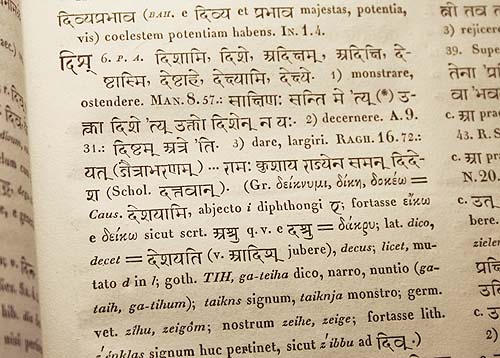 दिव्यप्रभाव (BAH. e दिव्य et प्रभाव majestas, potentia,
vis) coelestem potentiam habens. IN. 1.4.
दिश् 6. P. A. दिशामि, दिशे, अदिक्षम्, अदिक्षि, दे-
ष्टास्मि, देष्टाहे, देक्ष्यामि, देक्ष्ये. 1) monstrare,
ostendere. MAN. 8. 57.: साक्षिणः सन्ति मे ’त्यु (*) उ-
क्त्वा दिशे ’त्य् उक्तो दिशेन् न यः. 2) decernere. A. 9.
31.: दिष्टम् अत्रे ’ति. 3) dare, largiri. RAGH. 16. 72.:
(जैत्राभरणम्) ... रामः कुशाय राज्येन समन् दिदे-
श (Schol. दत्तवान्). (Gr. δείκνυμι, δίκη, δοκέω =
Caus. देशयामि, abjecto i diphthongi ए; fortasse εἴκω
e δείκω sicut scrt. अश्रु q. v. e दश्रु = δάκρυ; lat. dico,
decet = देशयति (v. आदिश् jubere), decus; licet, mu-
tato d in l; goth. TIH, ga-teiha dico, narro, nuntio (ga-
taih, ga-tihum); taikns signum, taiknja monstro; germ.
vet. zîhu, zeigôm; nostrum zeihe, zeige; fortasse lith.
signum huc pertinet, sicut z'ibbu ad दिव्.)
ती तव
3) rejicere
39. Supe
तेना
वा
c. आ
43. R. S
c. आ
N. 20.
c. उत्
zieler
c. उ
2)